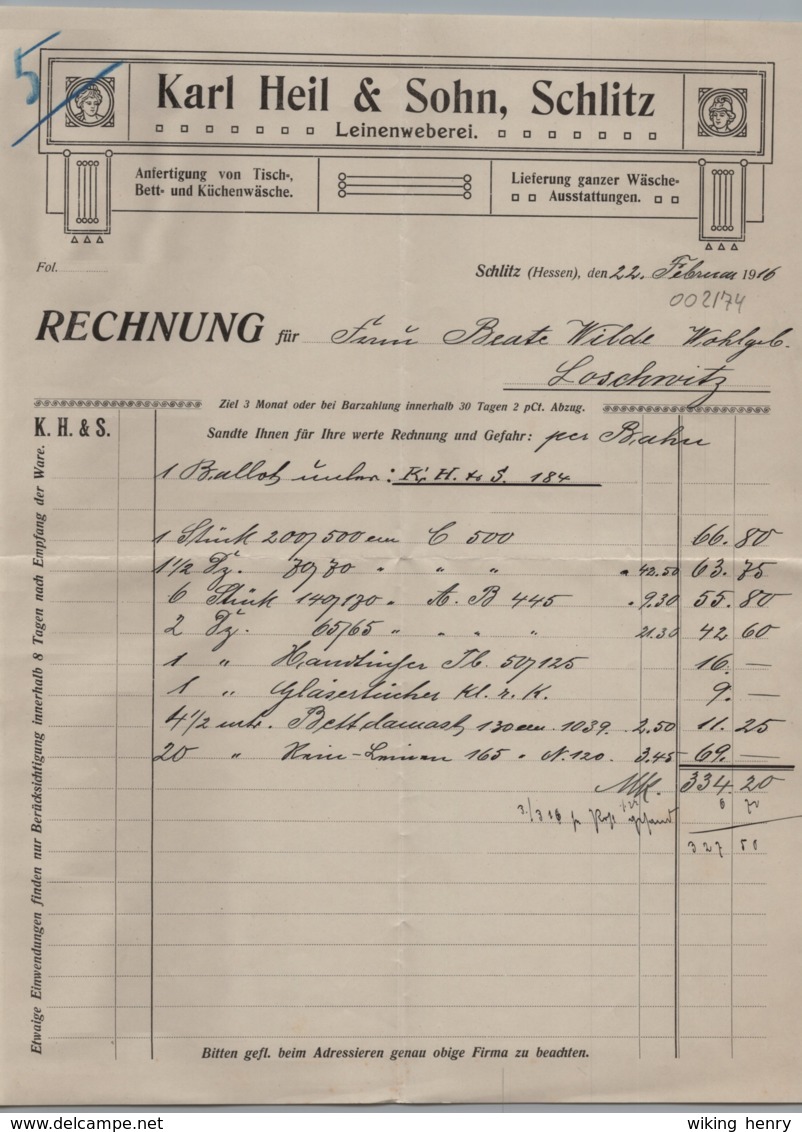 5
Karl Heil & Sohn, Schlitz
Leinenweberei.
Anfertigung von Tisch-,
Bett- und Küchenwäsche.
Lieferung ganzer Wäsche-
Ausstattungen.
Fol.
Schlitz (Hessen), den 22. Februar 1916
002174
RECHNUNG für Frau Beate Wilde Wohlgeb.
Loschwitz
Ziel 3 Monat oder bei Barzahlung innerhalb 30 Tagen 2 pCt. Abzug.
K. H. & S.
Sandte Ihnen für Ihre werte Rechnung und Gefahr: per Bahn
1 Ballot unter: K. H. & S. 184
1 Stück 200/500 cm C 500 66. 80
1 1/2 Dz. 70/70 " " " " 42.50 63. 75
6 Stück 140/170 " A. B 445 " 9.30 55. 80
2 Dz. 65/65 " " " " 21.30 42 60
1 " Handtücher Tb. 50/125 16. —
1 " Gläsertücher kl. r. K. 9. —
4 1/2 mtr. Bettdamast 130 cm. 1039. 2.50 11. 25
20 " Rein-Leinen 165 " N. 120. 3.45 69. —
Mk. 334. 20
6 70
3./3 16 p Post gesandt
327 50
Etwaige Einwendungen finden nur Berücksichtigung innerhalb 8 Tagen nach Empfang der Ware.
Bitten gefl. beim Adressieren genau obige Firma zu beachten.
www.delcampe.net
wiking henry